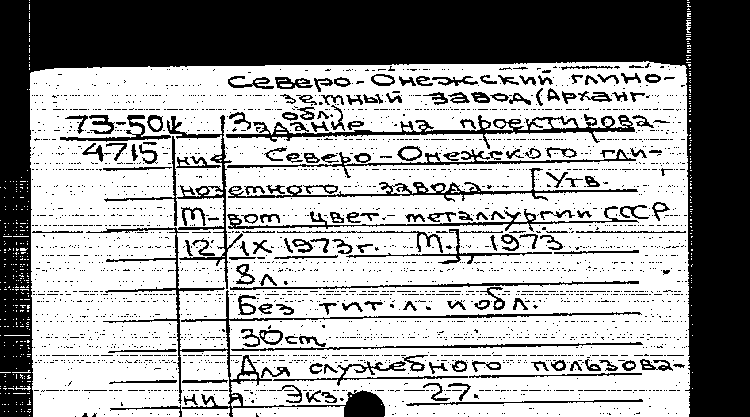 Северо-Онежский глино-
земный завод (Арханг.
обл.)
73-50ψ Задание на проектирова-
4715 ние Северо-Онежского гли-
ноземного завода. [Утв.
М-вом цвет. металлургии СССР
12/IX 1973г. М.], 1973
8л.
Без тит. л. и обл.
30см
Для служебного пользова-
ния. Экз. 27.